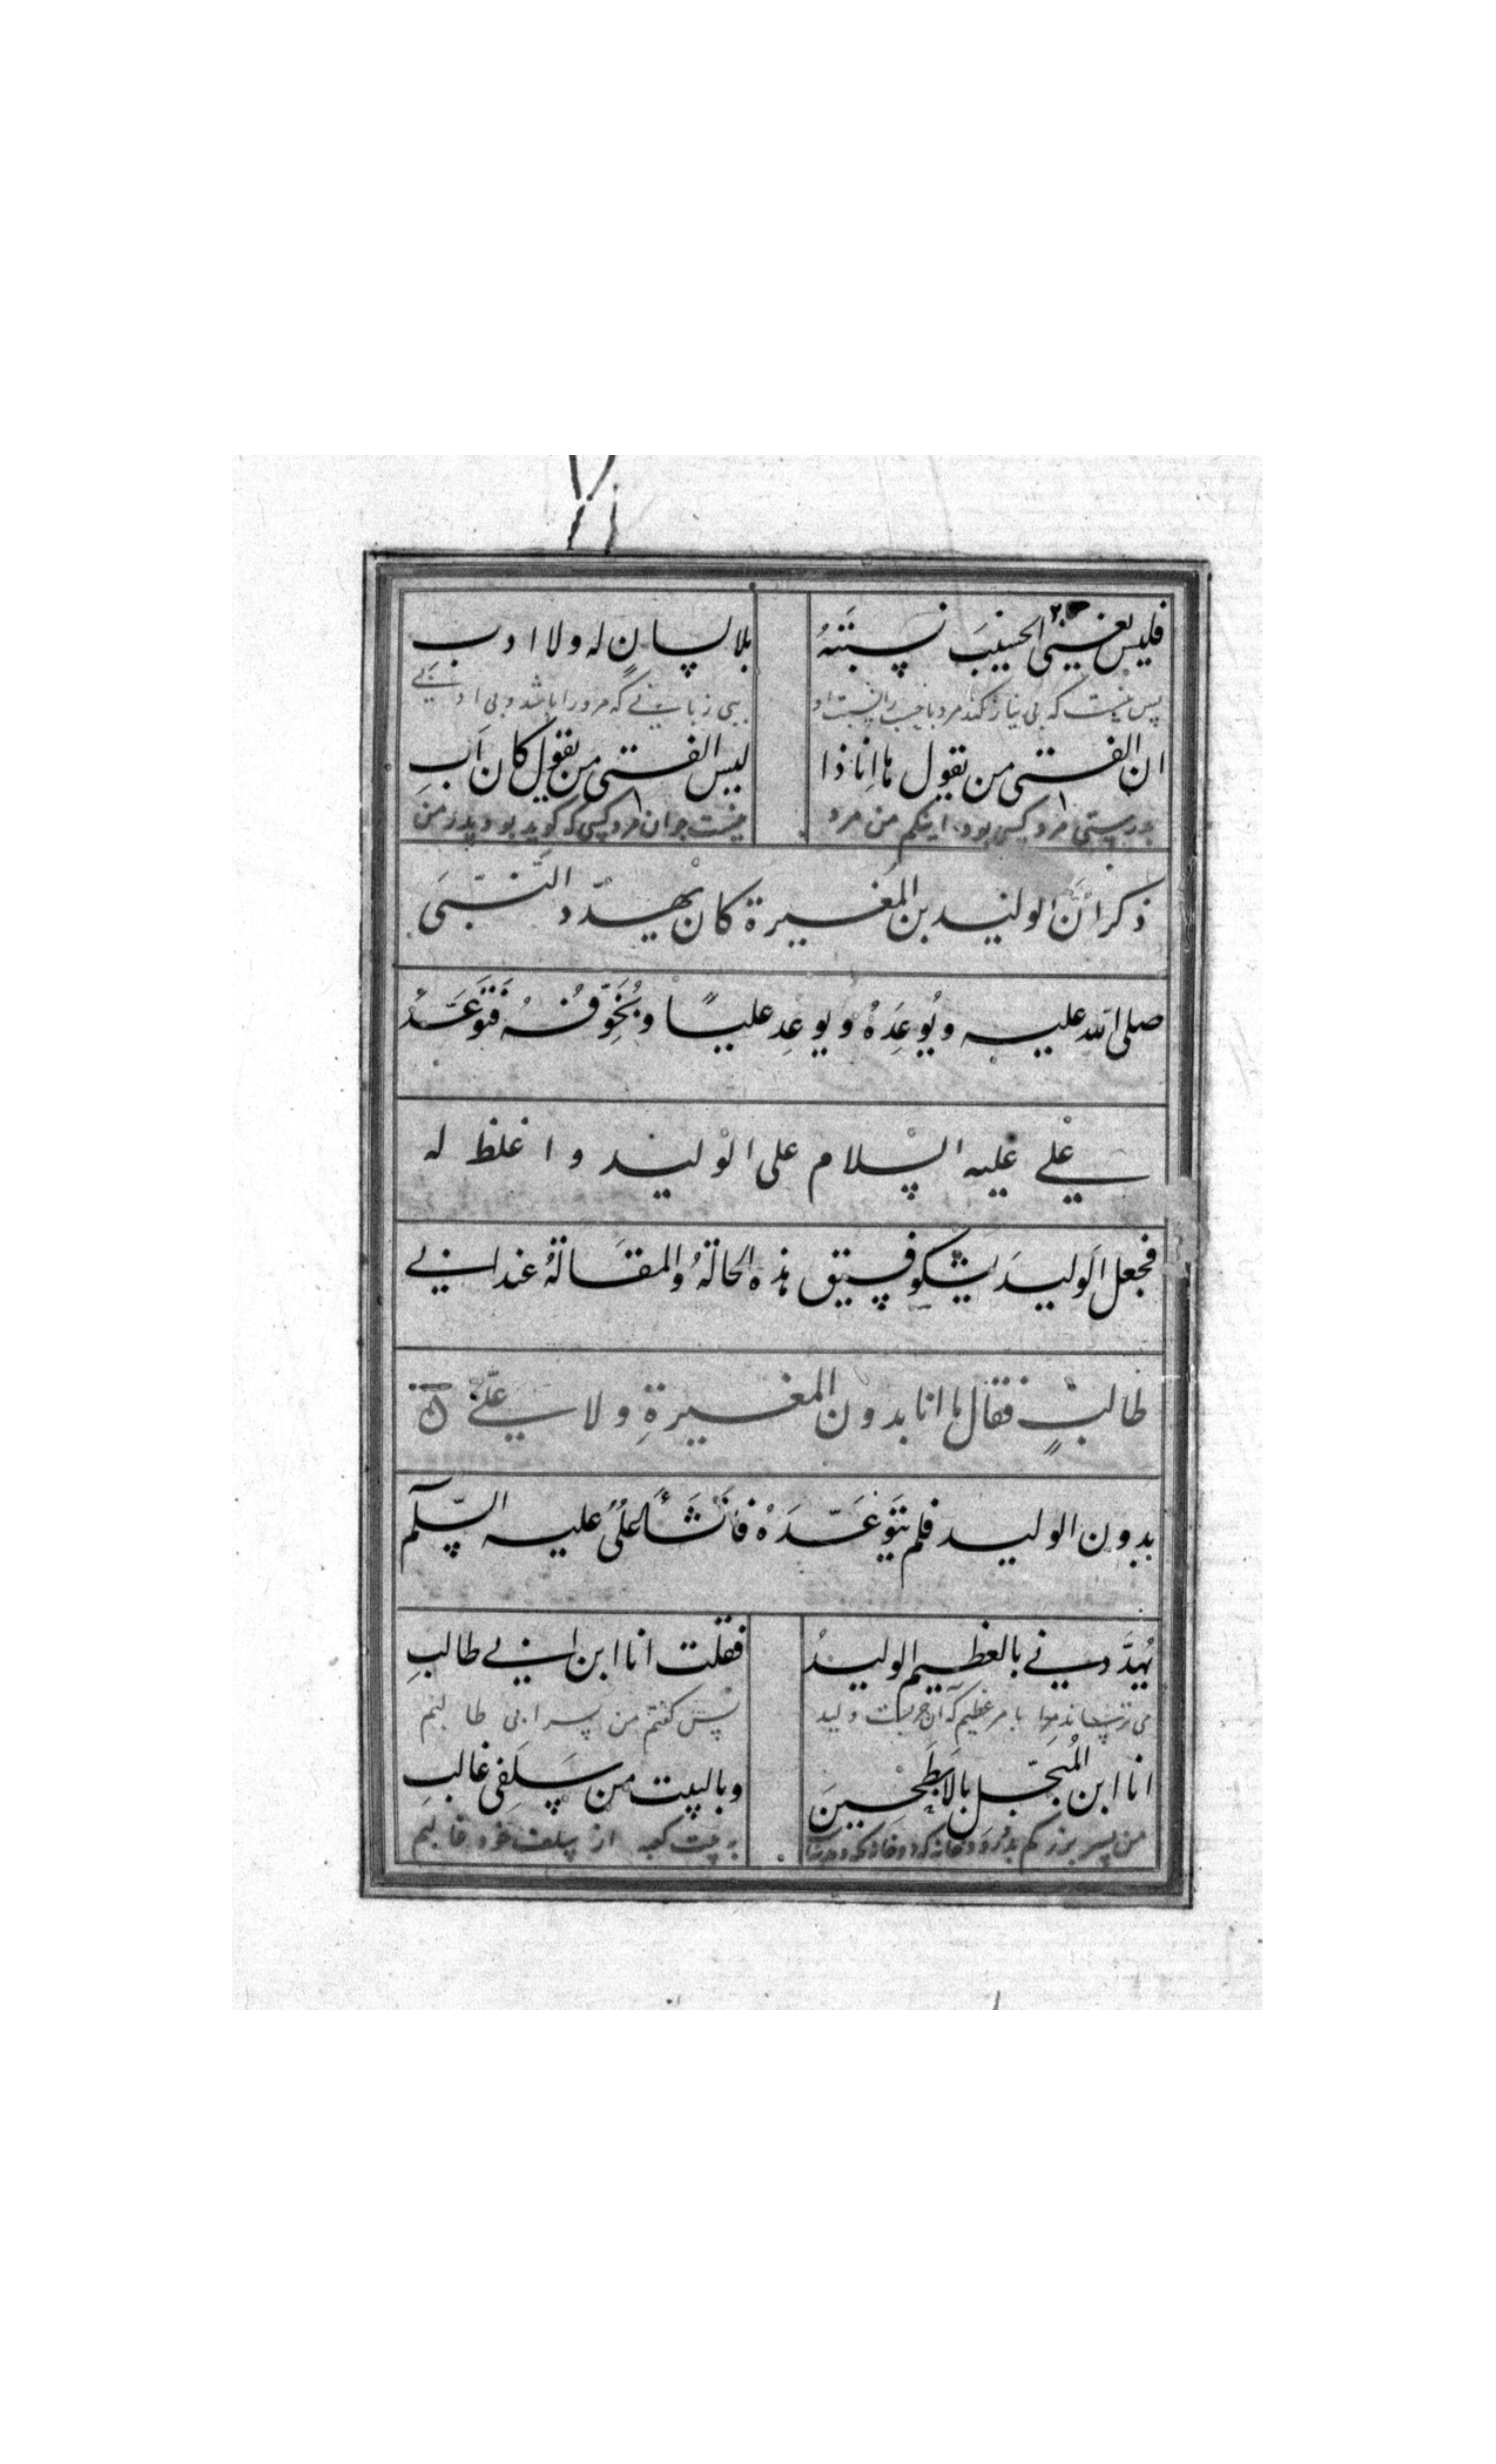 فليس يغني الحسيبَ نسبتهُ بلا لسانٍ له ولا ادب
پس نیست که بی نیاز کند مرد با حسب را نسبت او بی زبانی که مرو را باشد و بی ادبی
ان الفتى من يقول ها انا ذا ليس الفتى من يقول كان ابِ
بدرستی مرد کسی بود اینکم من مرد نیست جوان مرد کسی که گوید بود پدر من
ذكر انّ الوليد بن المُغيرة كان يهدّد النّبيَ
صلى الله عليه ويُوعِدَهُ ويوعِد علياً ويُخَوِّفُهُ فَتَوَعَّدُ
علي عليه السلام على الوليد واغلظ له
فجعل الوليدَ يشكو فسيق هذه الحالةُ والمقَالةُ عند ابي
طالبٍ فقال ها انا بدون المغيرةِ ولا علي
بدون الوليد فلم تتَوَعَّدَهُ فَانَشَأَ عليٌ عليه السّلم
يُهدَّدني بالعظيم الوليدُ فقلت انا ابن ابي طالبِ
می ترساند مرا بامر عظیم که آن حربست ولید پس گفتم من پسر ابی طالبم
انا ابن المُبَجّل بالابَطَحْينَ وبالبيت من سَلَفى غالبِ
من پسر بزرگم به بیت کعبه از سلف خود غالبم